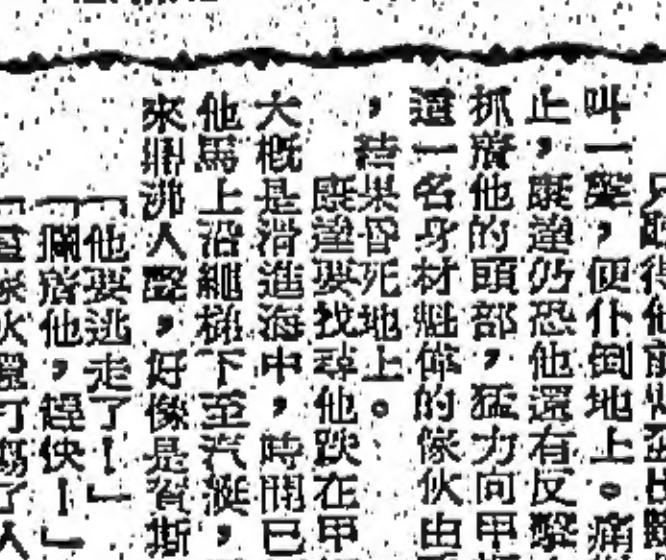 叫一聲，便仆倒地上。痛
止，康達仍恐他還有反擊
抓着他的頭部，猛力向甲
這一名身材魁偉的傢伙由
，結果昏死地上。
康達要找尋他跌在甲
大概是滑進海中，時間已
他馬上沿繩梯下至汽艇，
來鼎沸人聲，好像是賀斯
「他要逃走了！」
「攔着他，趕快！」